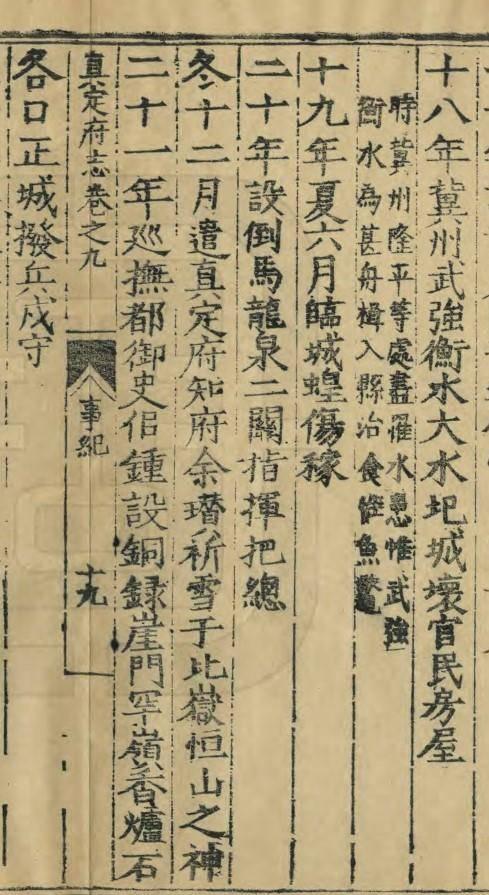 十八年冀州武強衡水大水圯城壞官民房屋
時冀州隆平等處盡罹水患惟武強
衡水為甚舟楫入縣治食惟魚鱉
十九年夏六月臨城蝗傷稼
二十年設倒馬龍泉二關指揮把總
冬十二月遣真定府知府余瓚祈雪于北嶽恒山之神
二十一年巡撫都御史侶鍾設銅錄崖門罕嶺香爐石
真定府志卷之九
事紀
十九
各口正城撥兵戍守